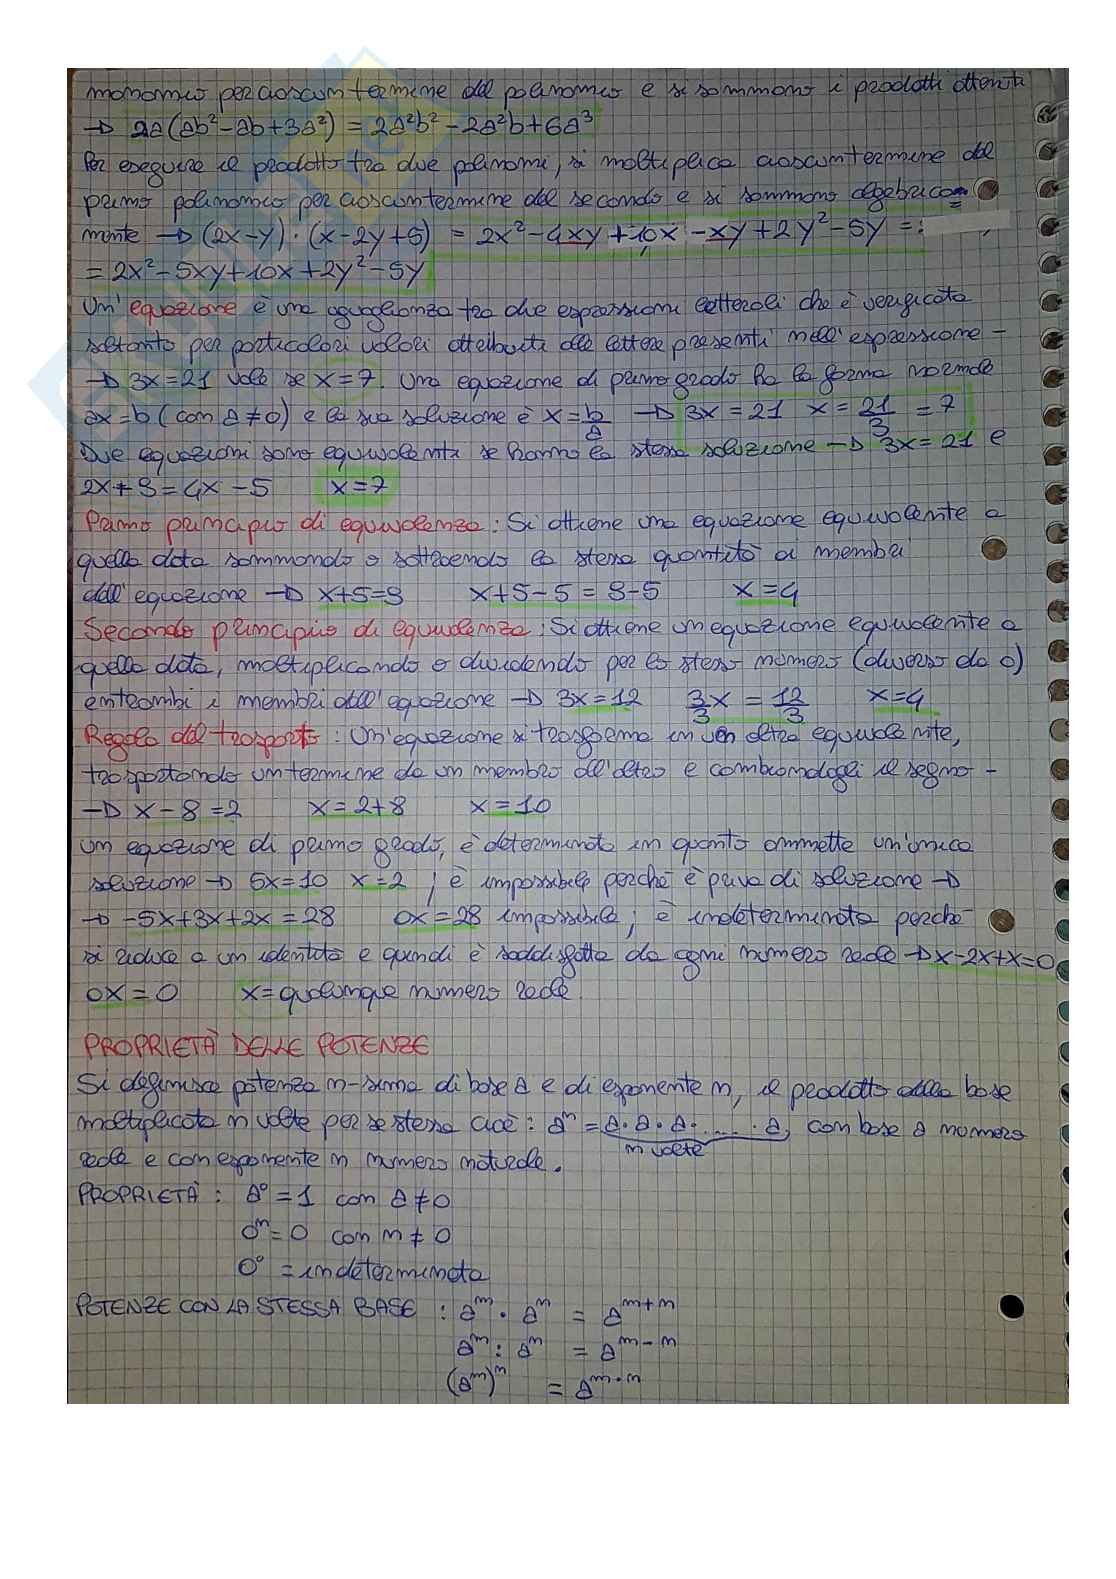 monomio per ciascun termine del polinomio e si sommano i prodotti ottenuti
→ 2a(ab²-ab+3a²) = 2a²b²-2a²b+6a³
Per eseguire il prodotto tra due polinomi, si moltiplica ciascun termine del
primo polinomio per ciascun termine del secondo e si sommano algebrica=
mente → (2x-y)·(x-2y+5) = 2x²-4xy+10x-xy+2y²-5y =
= 2x²-5xy+10x+2y²-5y
Un'equazione è una uguaglianza tra due espressioni letterali che è verificata
soltanto per particolari valori attribuiti alle lettere presenti nell'espressione -
→ 3x=21 vale se x=7. Una equazione di primo grado ha la forma normale
ax=b (con a≠0) e la sua soluzione è x=b/a → 3x=21 x=21/3=7
Due equazioni sono equivalenti se hanno la stessa soluzione → 3x=21 e
2x+9=4x-5 x=7
Primo principio di equivalenza: Si ottiene una equazione equivalente a
quella data sommando o sottraendo la stessa quantità ai membri
dell'equazione → x+5=9 x+5-5=9-5 x=4
Secondo principio di equivalenza: Si ottiene un equazione equivalente a
quella data, moltiplicando o dividendo per lo stesso numero (diverso da 0)
entrambi i membri dell'equazione → 3x=12 3/3x=12/3 x=4
Regola del trasporto: Un'equazione si trasforma in un altra equivalente,
trasportando un termine da un membro all'altro e cambiandogli il segno -
→ x-8=2 x=2+8 x=10
un equazione di primo grado, è determinata in quanto ammette un'unica
soluzione → 5x=10 x=2 ; è impossibile perché è priva di soluzione →
→ -5x+3x+2x=28 0x=28 impossibile; è indeterminata perché
si riduce a un identità e quindi è soddisfatta da ogni numero reale → x-2x+x=0
0x=0 x=qualunque numero reale
PROPRIETÀ DELLE POTENZE
Si definisce potenza n-sima di base a e di esponente n, il prodotto della base
moltiplicata n volte per se stessa cioè: aⁿ=a·a·a·....·a, con base a numero
n volte
reale e con esponente n numero naturale.
PROPRIETÀ: a⁰=1 con a≠0
0ⁿ=0 con n≠0
0⁰ =indeterminata
POTENZE CON LA STESSA BASE : aᵐ·aⁿ = aᵐ⁺ⁿ
aᵐ:aⁿ = aᵐ⁻ⁿ
(aᵐ)ⁿ = aᵐ·ⁿ